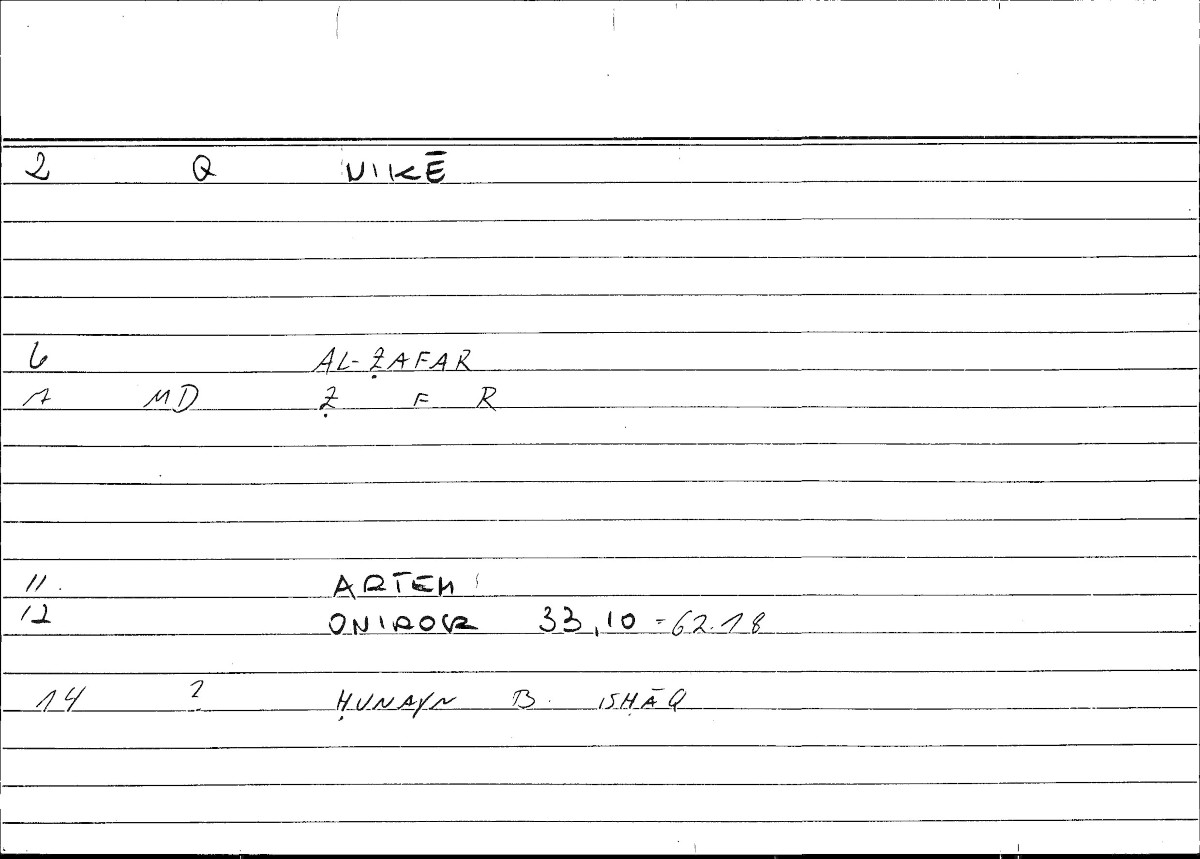 2 Q NIKĒ
6 AL-ẒAFAR
7 MD Ẓ F R
11. ARTEM
12 ONIROCR 33,10 = 62.18
14 ? ḤUNAYN B. ISḤĀQ